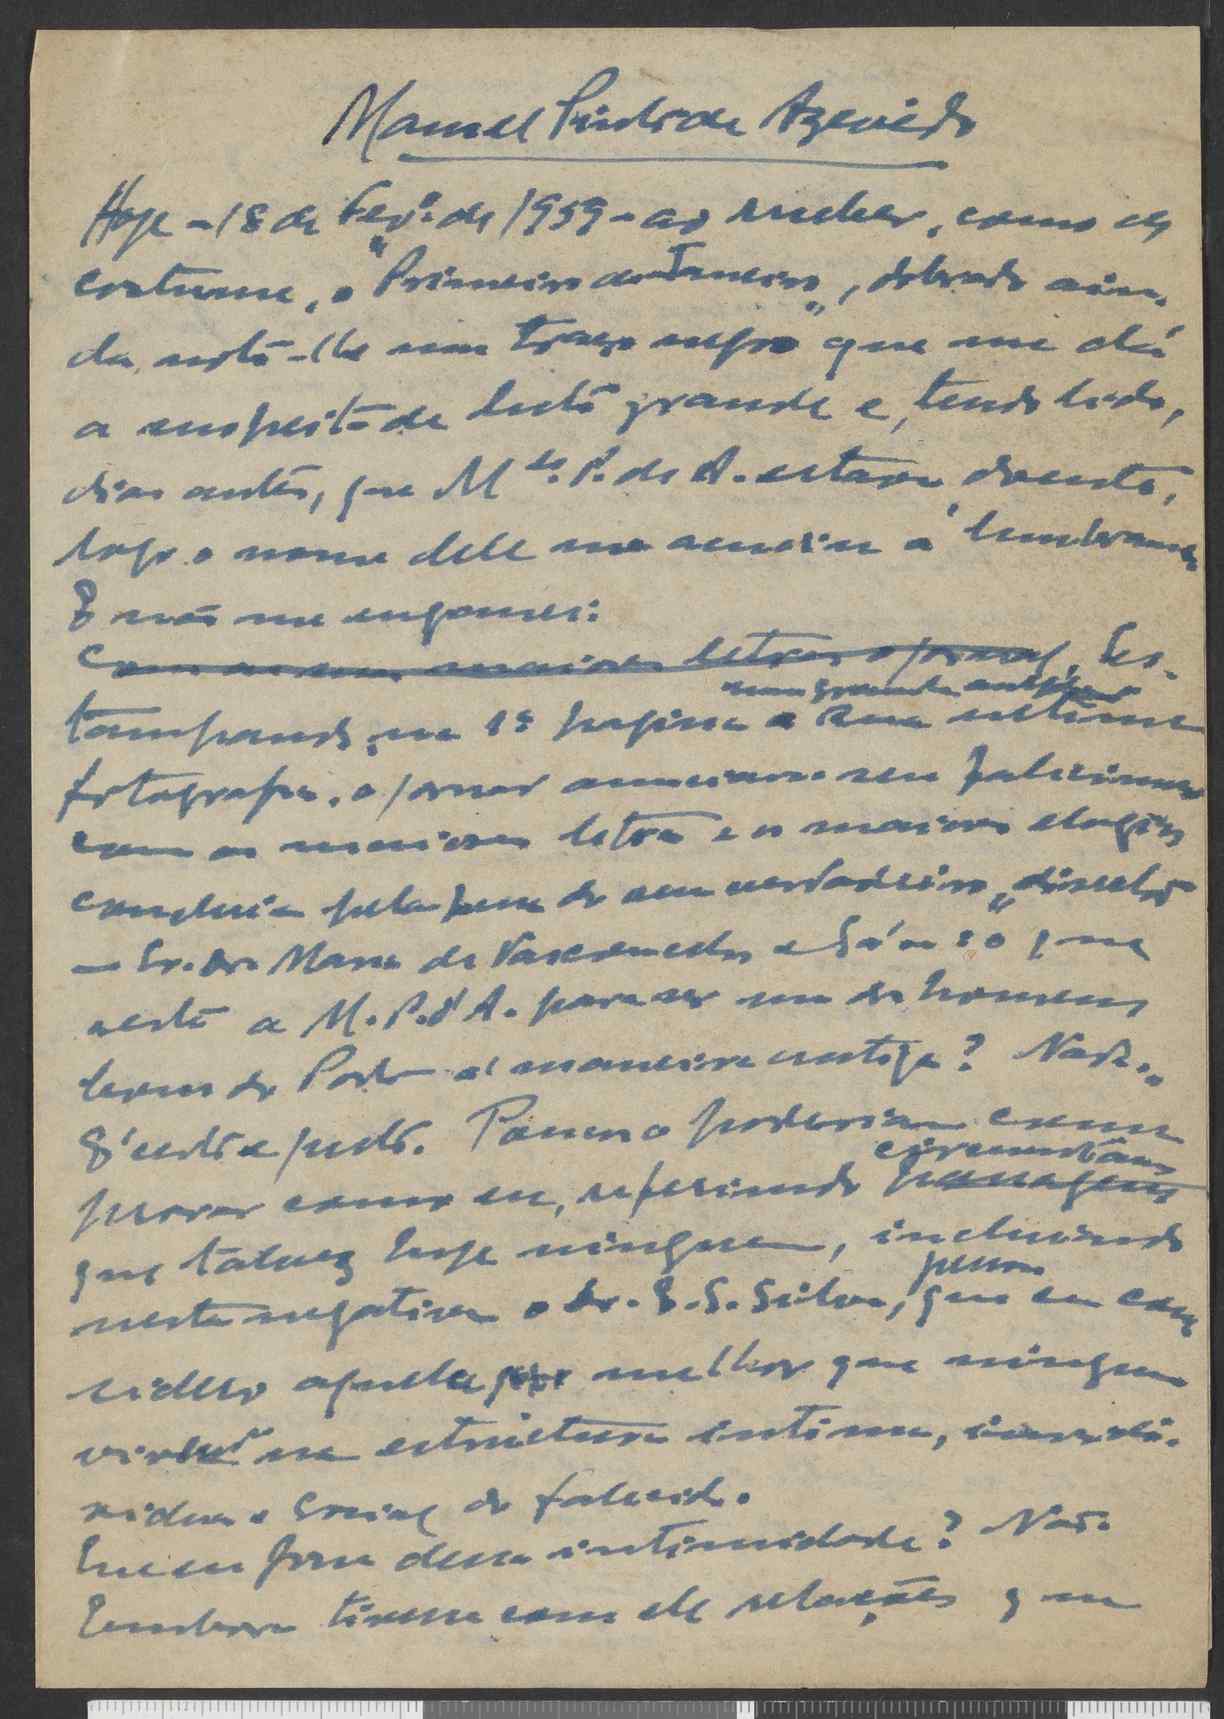 Manuel Pinto de Azevedo
Hoje - 18 de Fevº. de 1959 - ao receber, como de
costume, o "Primeiro de Janeiro", dobrado ain-
da, noto-lhe um traço negro que me dá
a suspeita de luto grande e, tendo lido,
dias antes, que Mel. P. de A. estava doente,
logo o nome dele me acudiu á lembrança
E não me enganei:
Com as suas maiores letras o jornal, Es-
num grande
tampando, na 1ª pagina a sua ultima
fotografia, o jornal anunciava seu falecimento
com as maiores letras e os maiores elogios
conduzia pela pena do seu verdadeiro "director"
- Sr. Dr. Manuel de Vasconcelos e Sá - : o que
resta a M. P. d'A. para ser um dos homens
bons do Porto á maneira antiga? Nada."
E' certo e justo. Poucos o poderiam com-
circunstâncias
provar como eu, referindo passagens
que talvez hoje ninguem, incluindo
pessoa
nesta negativa o Dr. E. S. Silva, que eu con-
sidero aquela que melhor que ninguem
na estructura intima,
e social do falecido.
Era eu fora dessa intimidade? Não.
Embora tivesse com ele relações que